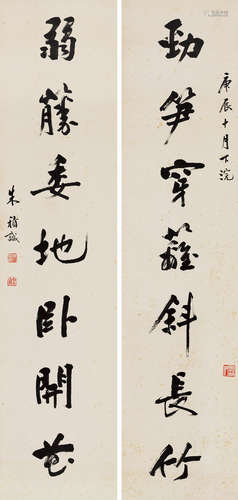 庚辰十月下浣
勁筍穿籬斜長竹
弱藤委地臥開花
朱福诚